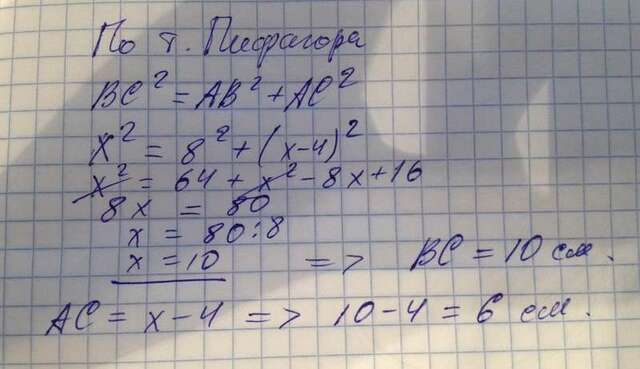 По т. Пифагора
BC² = AB² + AC²
x² = 8² + (x-4)²
x² = 64 + x² - 8x + 16
8x = 80
x = 80:8
x = 10 => BC = 10 см.
AC = x - 4 => 10 - 4 = 6 см.